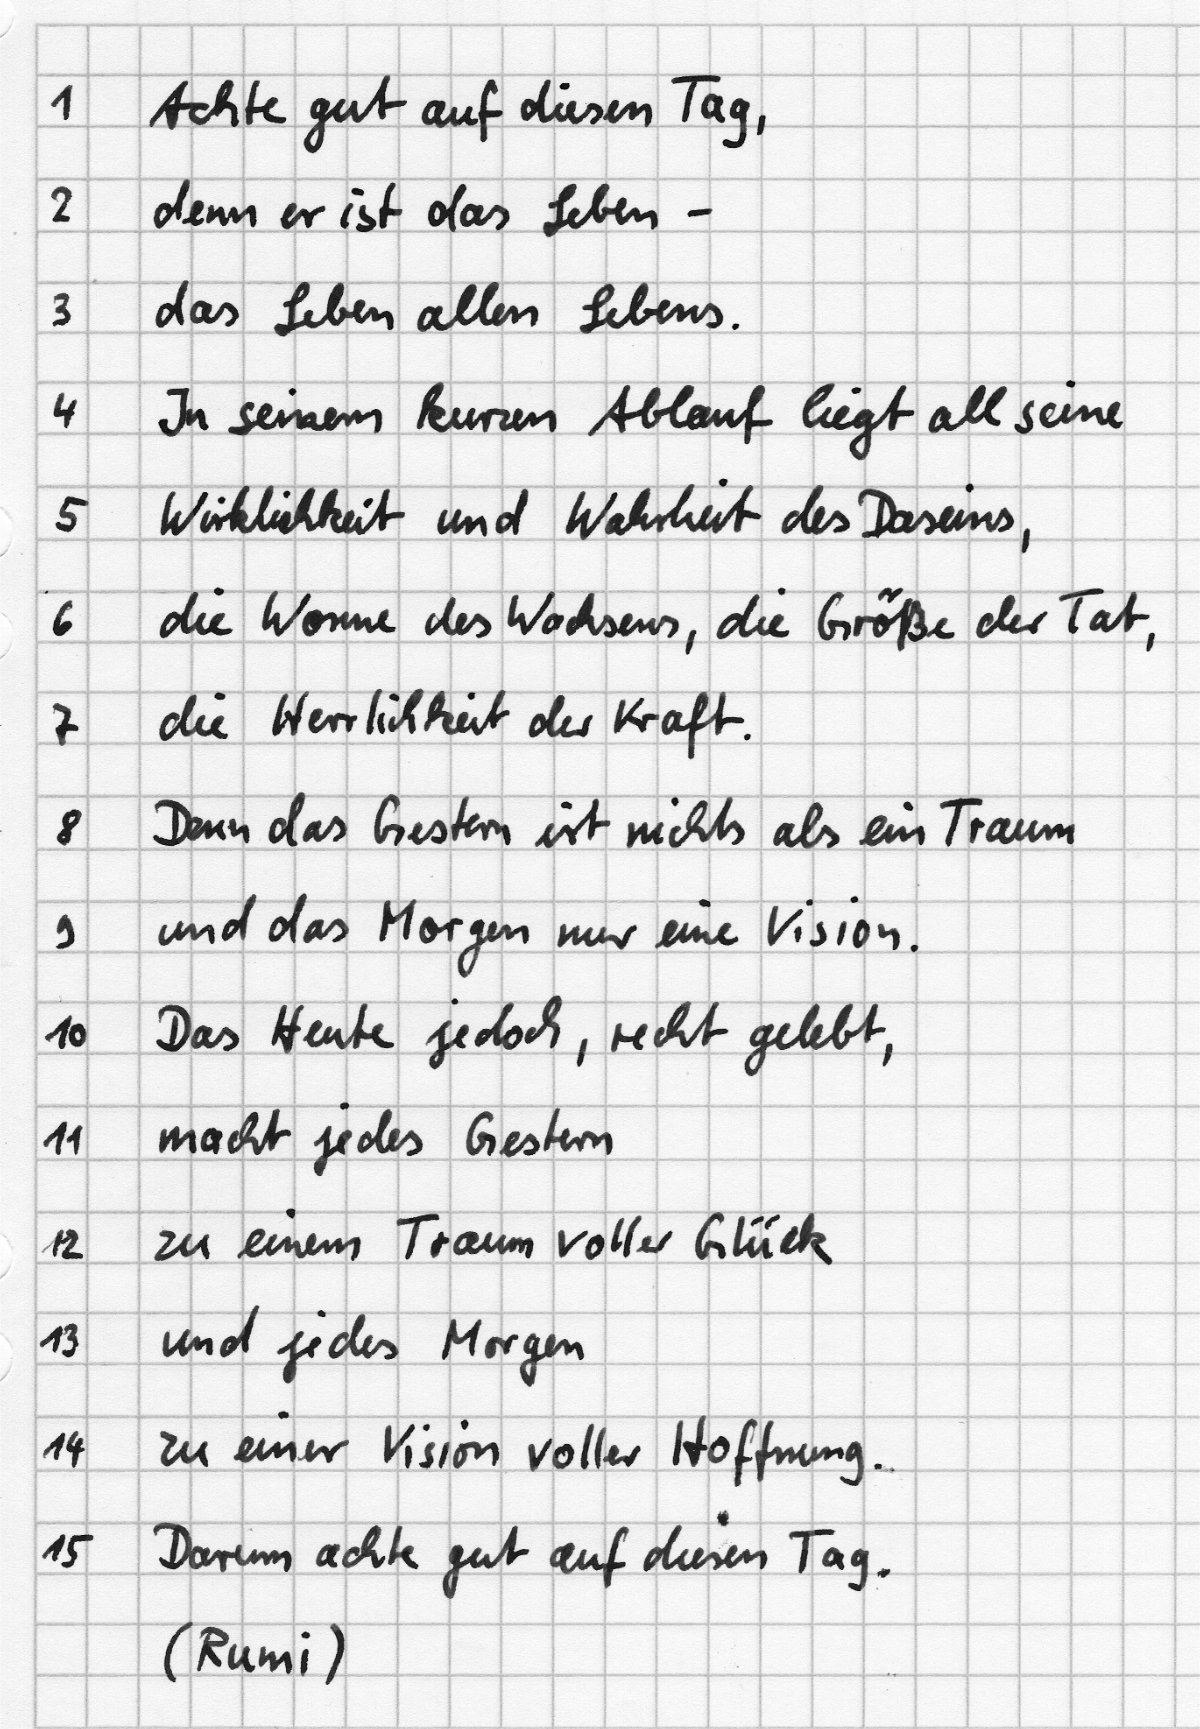 1 Achte gut auf diesen Tag,
2 denn er ist das Leben -
3 das Leben allen Lebens.
4 In seinem kurzen Ablauf liegt all seine
5 Wirklichkeit und Wahrheit des Daseins,
6 die Wonne des Wachsens, die Größe der Tat,
7 die Herrlichkeit der Kraft.
8 Denn das Gestern ist nichts als ein Traum
9 und das Morgen nur eine Vision.
10 Das Heute jedoch, recht gelebt,
11 macht jedes Gestern
12 zu einem Traum voller Glück
13 und jedes Morgen
14 zu einer Vision voller Hoffnung.
15 Darum achte gut auf diesen Tag.
(Rumi)